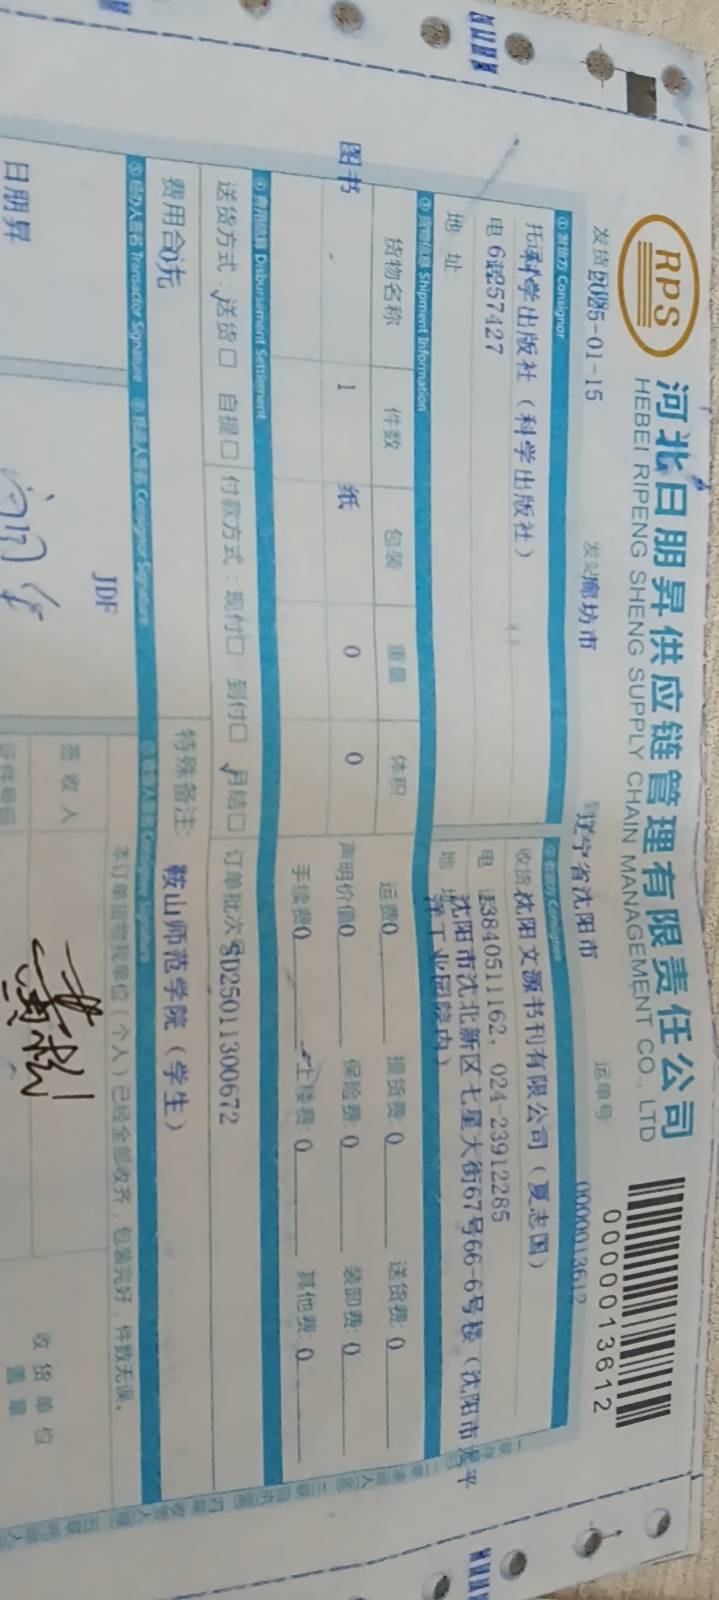 RPS
河北日朋昇供应链管理有限责任公司
HEBEI RIPENG SHENG SUPPLY CHAIN MANAGEMENT CO., LTD
0000013612
发货 2025-01-15 发站 廊坊市 到 辽宁省沈阳市 运单号: 0000013612
①发货方 Consignor ②收货方 Consignee
科学出版社（科学出版社） 收货 沈阳文源书刊有限公司（夏志国）
电 57427 电 话 13840511162，024-23912285
地 址: 地 址 沈阳市沈北新区七星大街67号66-6号楼（沈阳市 平
洋工业园院内）
③货物信息 Shipment Information
货物名称 件数 包装 重量 体积 运费 0 提货费: 0 送货费: 0
图书 1 纸 0 0 声明价值 0 保险费: 0 装卸费: 0
手续费 0 上楼费: 0 其他费: 0
④费用结算 Disbursement Settlement
送货方式: 送货□ 自提□ 付款方式: 现付□ 到付□ 月结□ 订单批次号 SD25011300672
费用合 0 特殊备注: 鞍山师范学院（学生）
⑤经办人签名 Transactor Signature ⑥托运人签名 Consignor Signature ⑦收货人签名 Consignee Signature
本订单货物我单位（个人）已经全部收齐，包装完好，件数无误。
日朋昇 JDF 签收人 收货单位
证件号码 盖章